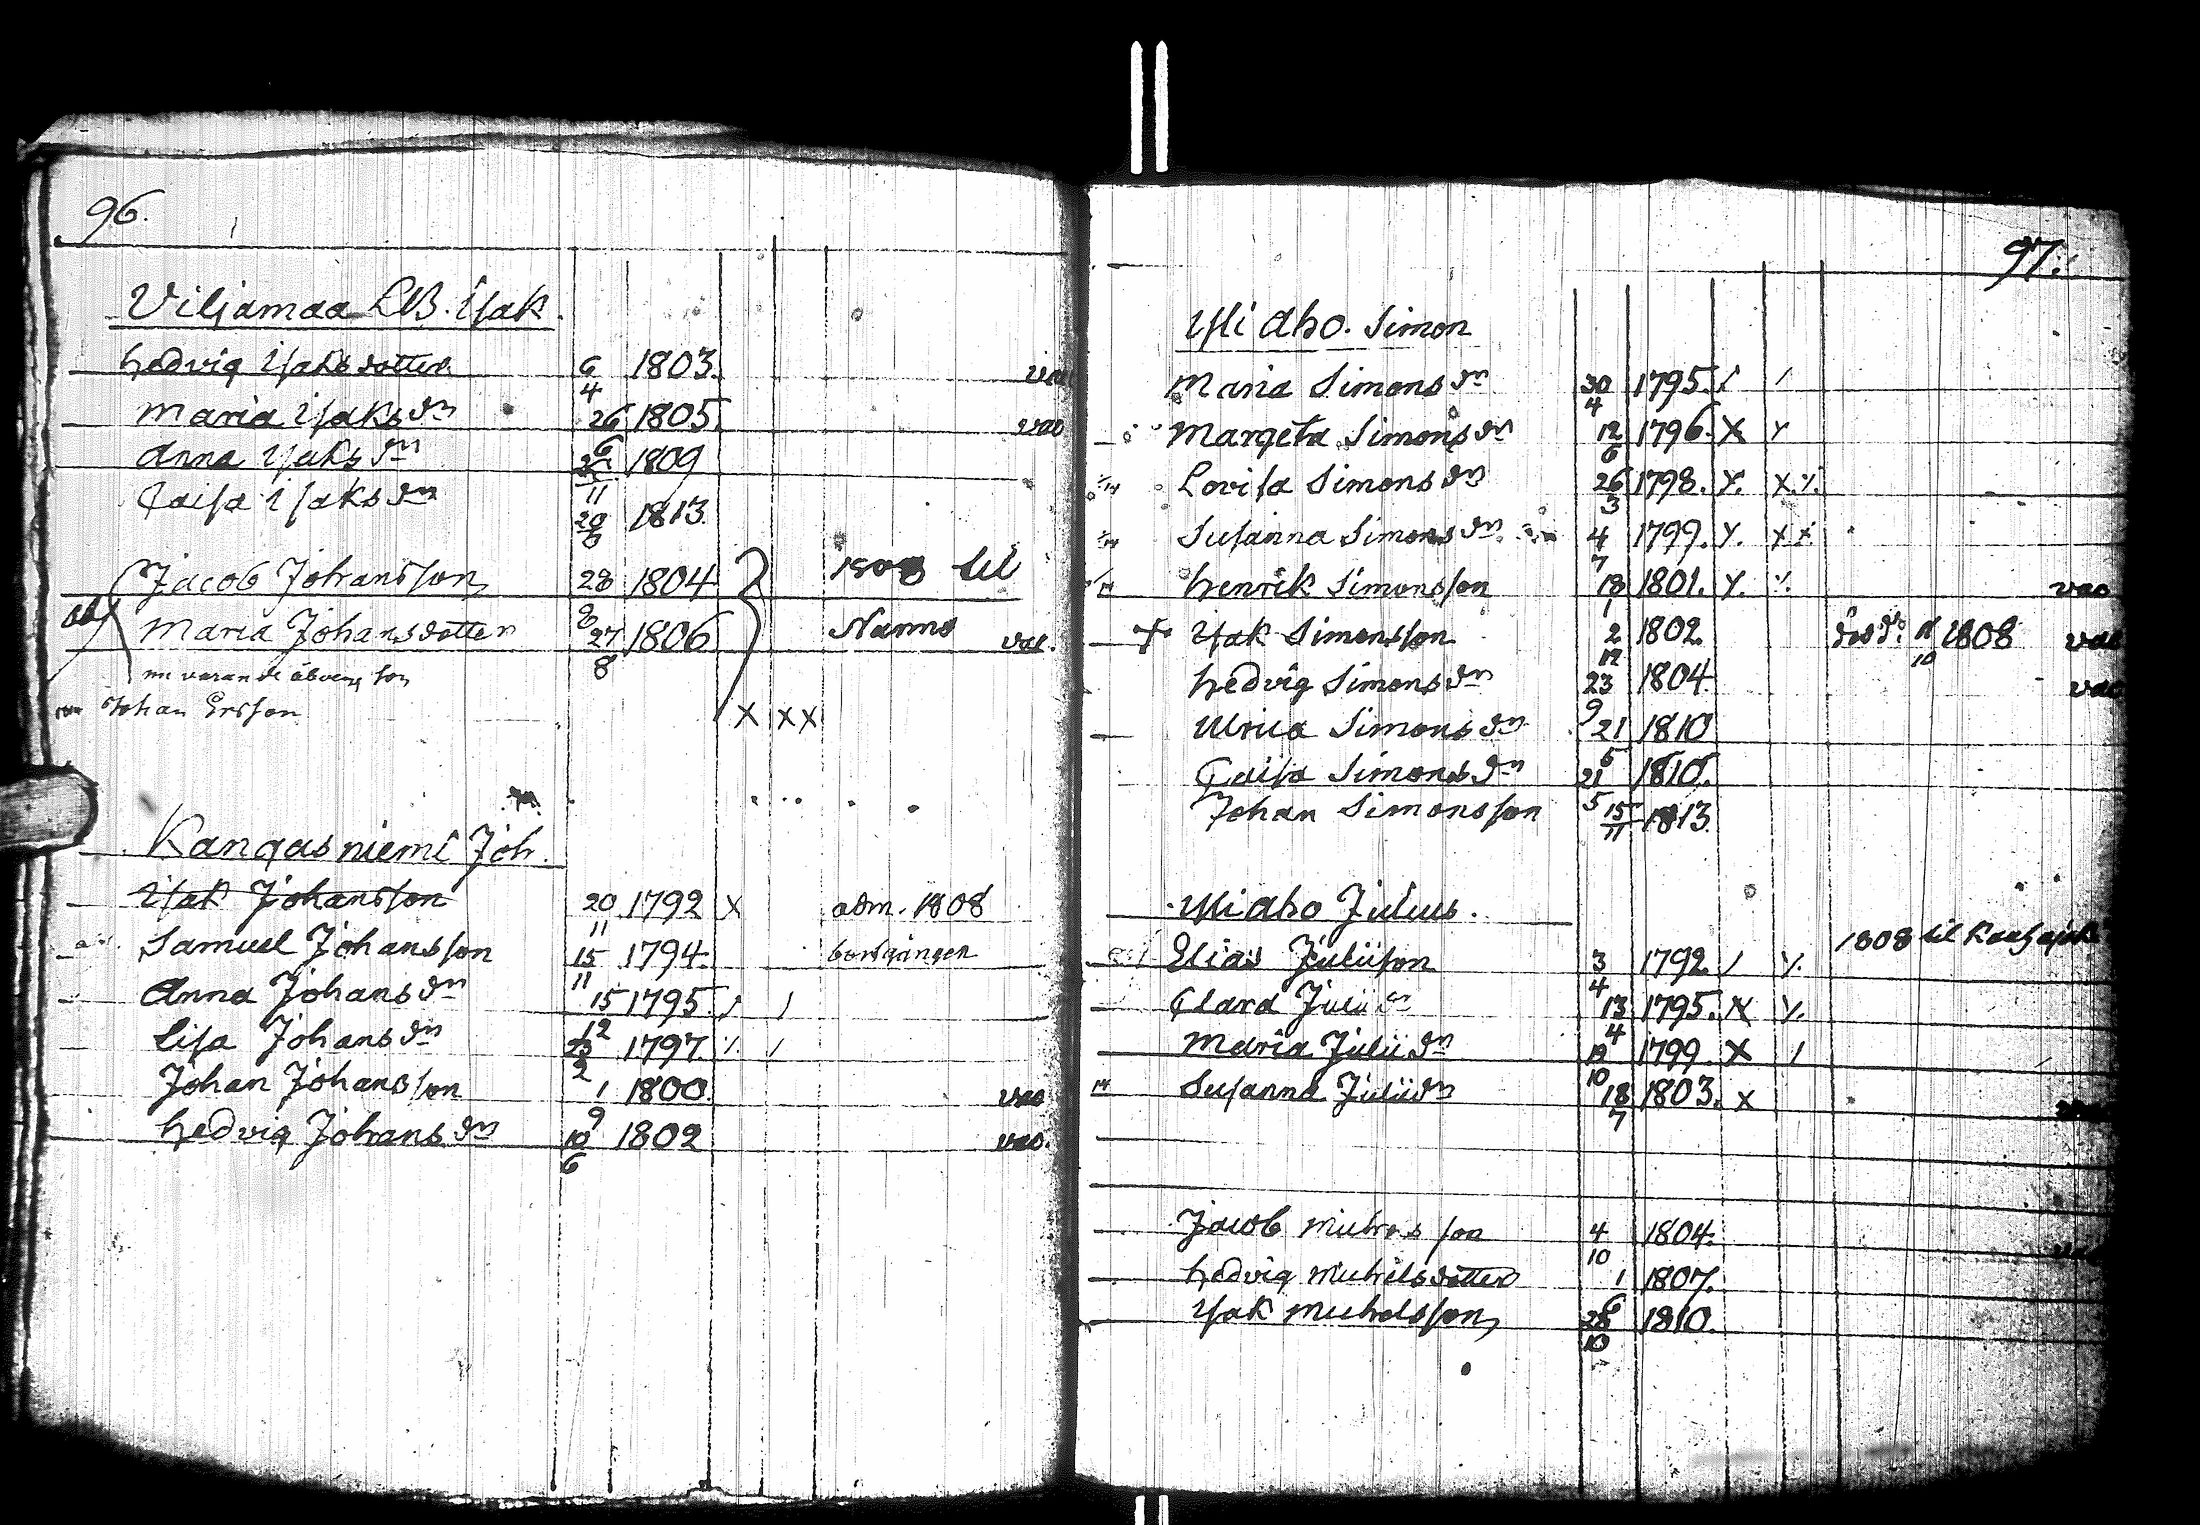 96.
Viljamaa LB. Isak.
Hedvig Isaksdotter 6/4 1803. vac
Maria Isaksdr 26/6 1805. vac
Anna Isaksdr 1809
Caisa Isaksdr 1813.
Jacob Johansson 28/8 1804 1808 til
Maria Johansdotter 27/8 1806 Narmo vac.
Johan Ersson X XX
Kangasniemi Joh.
Isak Johansson 20/11 1792 X adm. 1808
Samuel Johansson 15/11 1794. bortgången
Anna Johansdr 15/12 1795. / /
Lisa Johansdr 1797. /
Johan Johansson 1/9 1800. vac
Hedvig Johansdr 10/6 1802 vac.
97.
Yli Aho. Simon
Maria Simonsdr 30/4 1795. / /
Margeta Simonsdr 12/6 1796. X
Lovisa Simonsdr 26/3 1798.
Susanna Simonsdr 4/7 1799.
Henrik Simonsson 18/1 1801. vac
+ Isak Simonsson 2/12 1802. 1808 vac
Hedvig Simonsdr 23/9 1804. vac
Ulrica Simonsdr 21/5 1810
Caisa Simonsdr 21/5 1810.
Johan Simonsson 15/11 1813.
Yli Aho Julius.
1808 til
Elias Juliison 3/4 1792 /
Clara Juliidr 13/4 1795. X
Maria Juliidr 1799. X /
Susanna Juliidr 18/7 1803. X
Jacob Michelsson 4/10 1804.
Hedvig Michelsdotter 1/6 1807.
Isak Michelsson 28/10 1810.